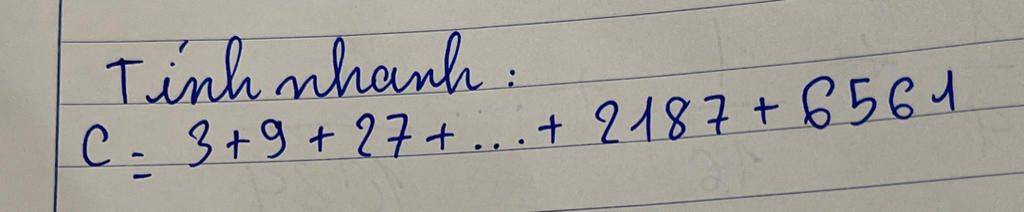 Tính nhanh:
C = 3 + 9 + 27 + ... + 2187 + 6561